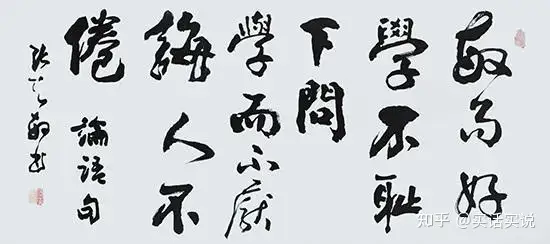 敏而好
學不耻
下問
學而不厭
誨人不
倦 論語句
知乎 @实话实说